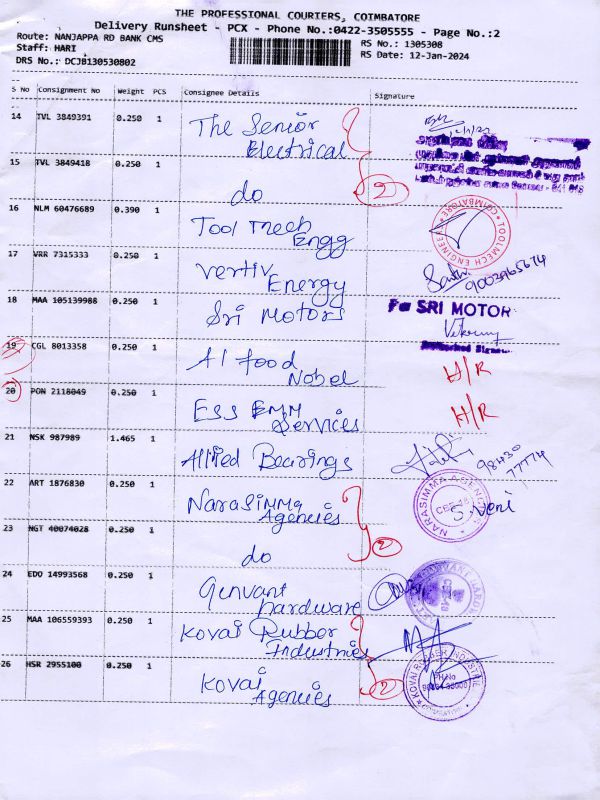 THE PROFESSIONAL COURIERS, COIMBATORE
Delivery Runsheet - PCX - Phone No.:0422-3505555 - Page No.:2
Route: NANJAPPA RD BANK CMS
Staff: HARI
DRS No.: DCJB130530802
RS No.: 1305308
RS Date: 12-Jan-2024
S No Consignment No Weight PCS Consignee Details Signature
14 TVL 3849391 0.250 1 The Senior
Electrical
15 TVL 3849418 0.250 1 do 2
16 NLM 60476689 0.390 1 Tool Mech
Engg
COIMBATORE
TOOLMECH ENGINEERS
17 VRR 7315333 0.250 1 Vertiv
Energy
9003965674
18 MAA 105139988 0.250 1 Sri Motors
For SRI MOTOR
19 CGL 8013358 0.250 1 A1 Food
Nobel H/R
20 PON 2118049 0.250 1 Ess EMM
Services H/R
21 NSK 987989 1.465 1 Allied Bearings
98430
77774
22 ART 1876830 0.250 1 Narasimma
Agencies
NARASIMMA AGENCIES
S. Veni
23 NGT 40074028 0.250 1 do 2
24 EDO 14993568 0.250 1 Gunvant
hardware
25 MAA 106559393 0.250 1 Kovai Rubber
Industries
26 HSR 2955100 0.250 1 Kovai
Agencies 2
KOVAI RUBBER INDUSTRIE
PH.No
COIMBATORE